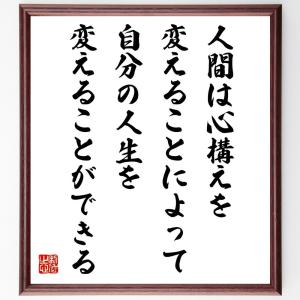 人間は心構えを
変えることによって
自分の人生を
変えることができる